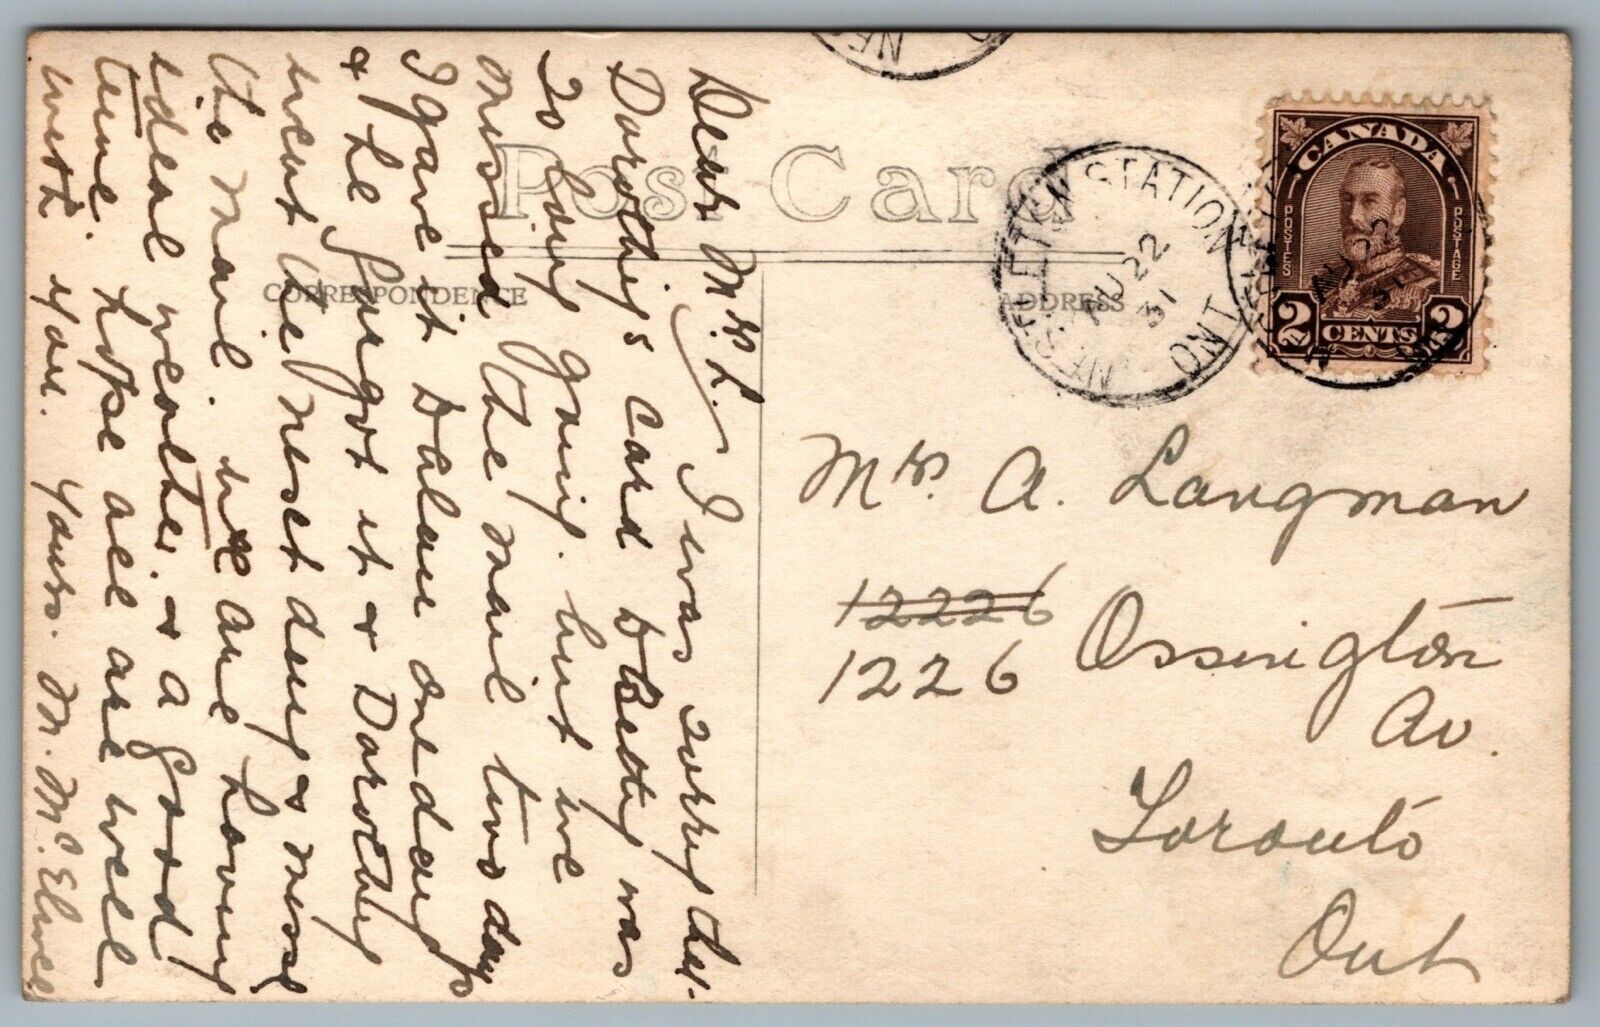 Post Card
CORRESPONDENCE
ADDRESS
CANADA
POSTES
POSTAGE
2 CENTS 2
STATION
AU 22
31
ONT
Dear Mrs L. I was sorry that
Dorothy's Card & Betty was
So long going. but we
missed the mail two days
I gave it Dalau one day
& he forgot it & Dorothy
went the next day & miss
the mail. we are having
ideal weather. & a good
time. hope all are well
with you. yours. M. Mc.
Mrs. A. Langman
12226
1226 Ossington
Av.
Toronto
Ont